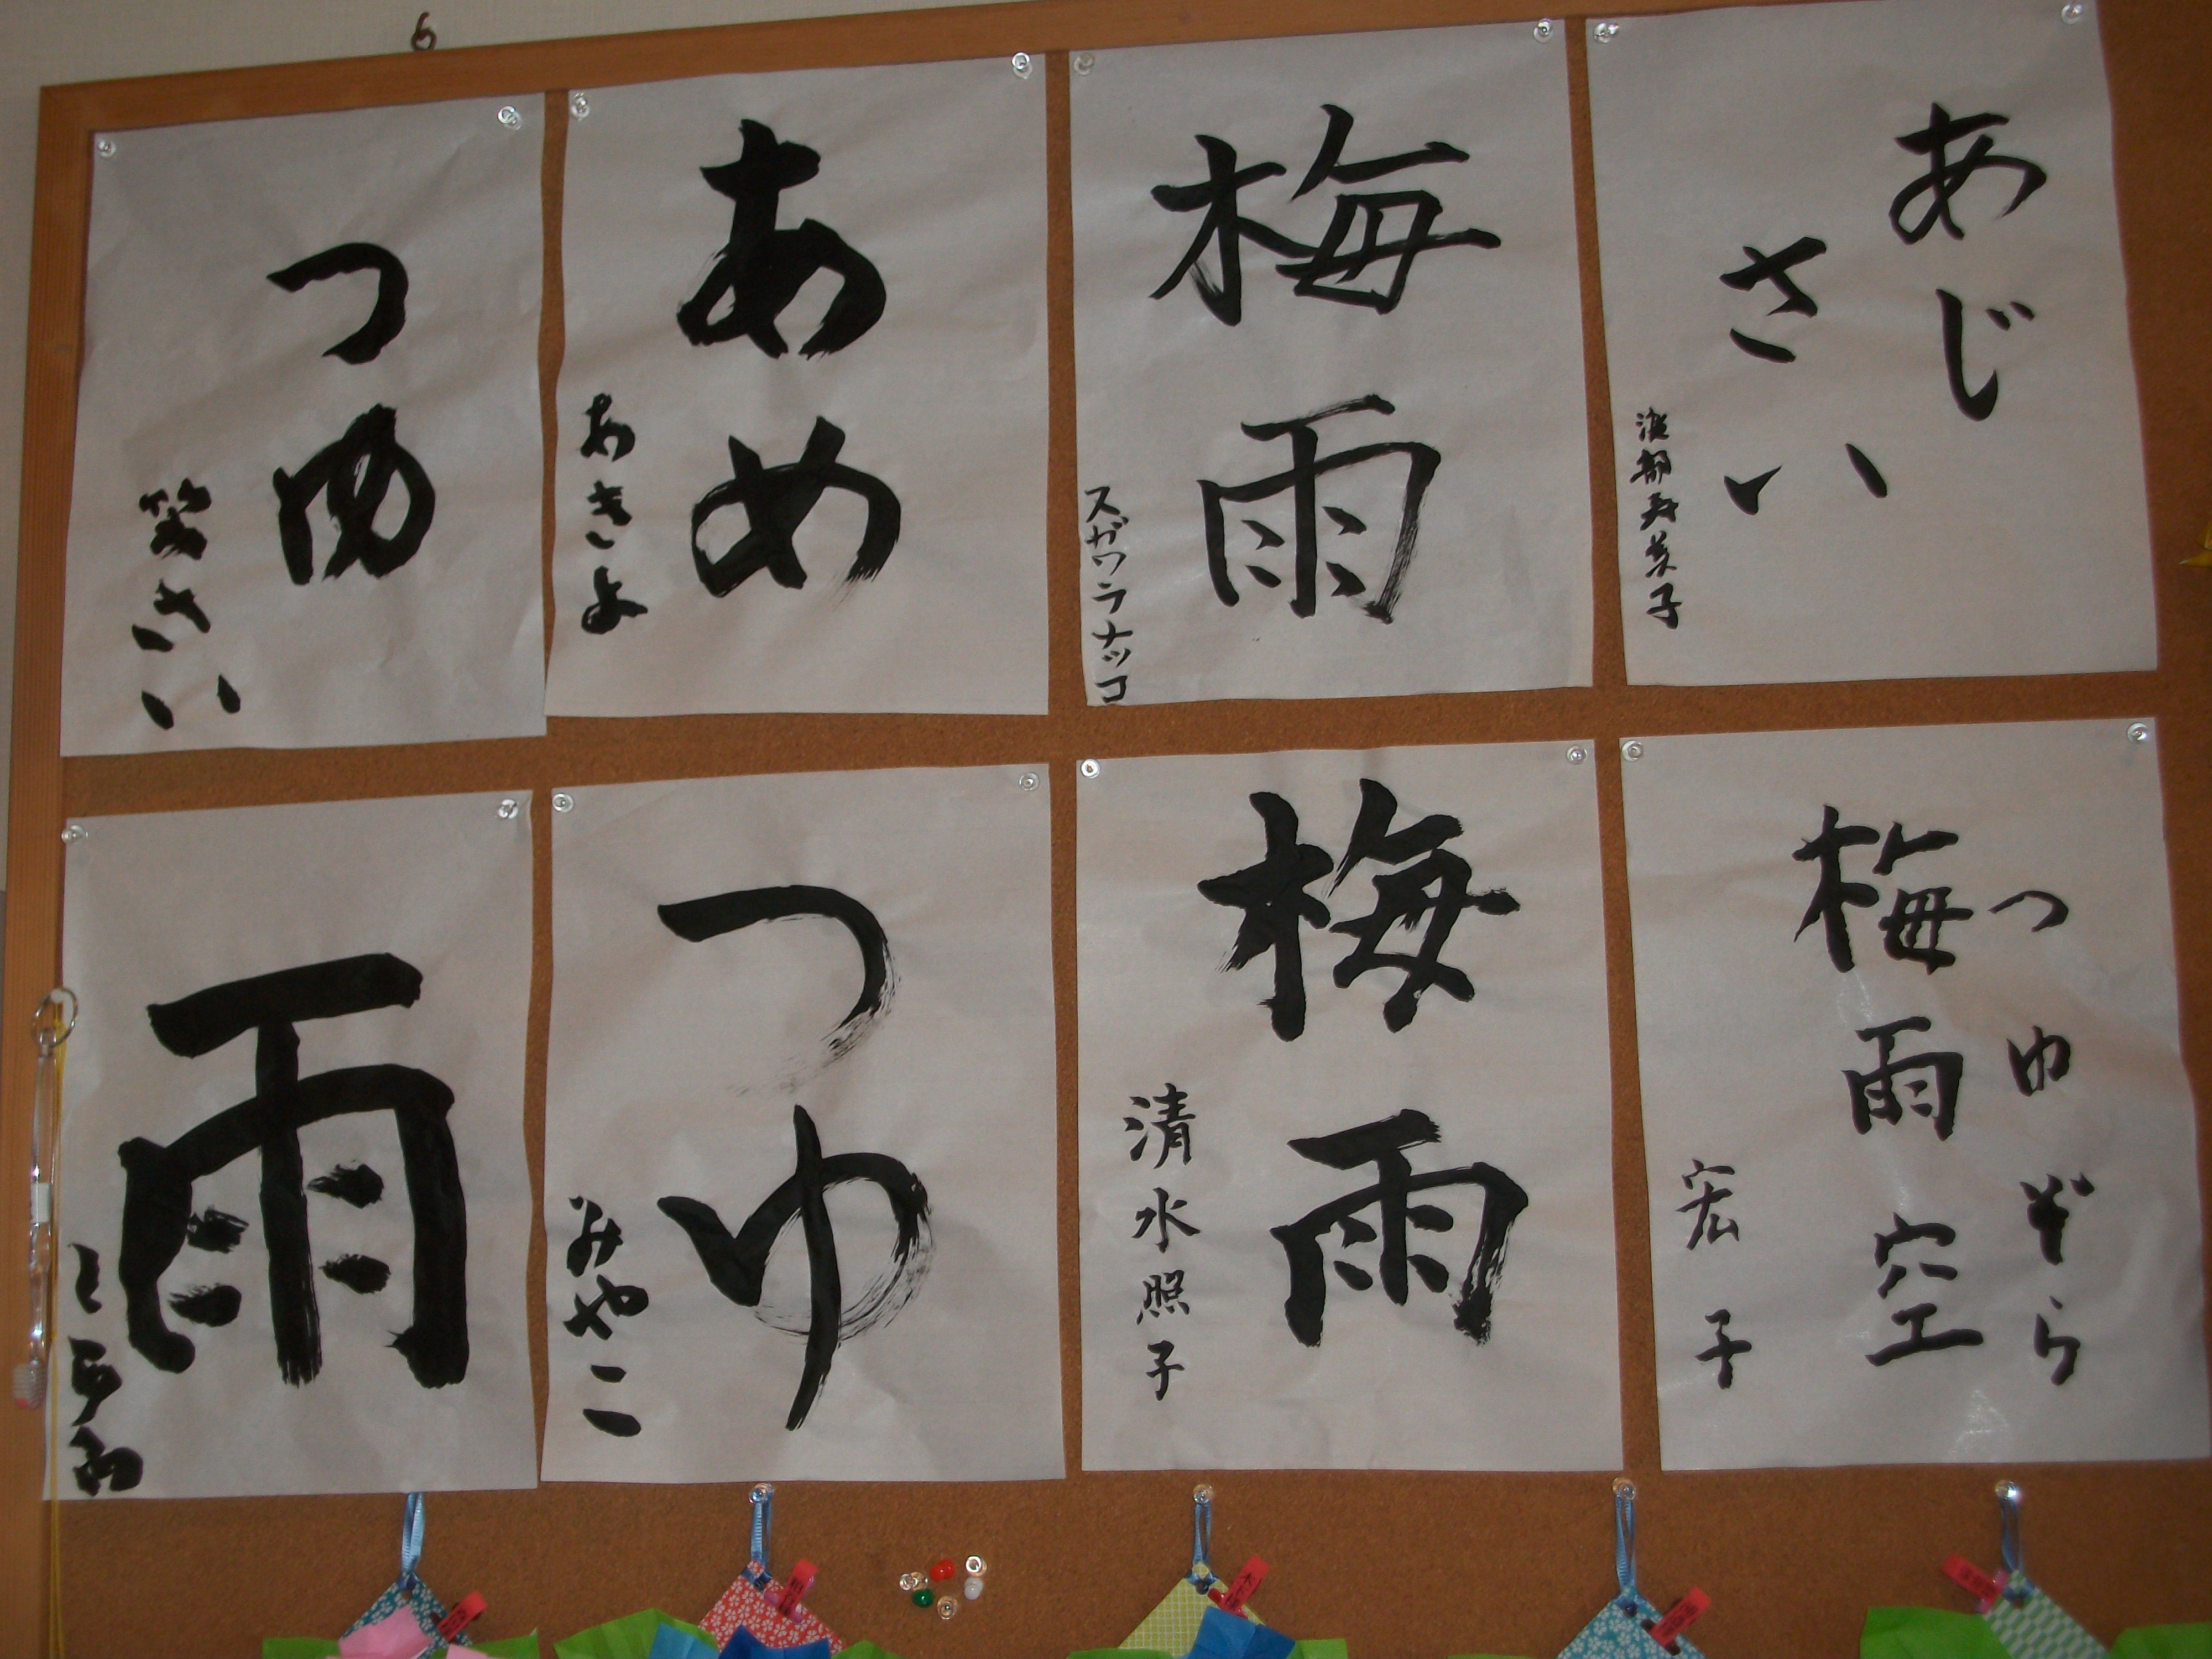 あじ
さい
渡部寿美子
梅雨
スガワラナツコ
あめ
あきよ
つゆ
笑さい
つゆぞら
梅雨空
宏子
梅雨
清水照子
つゆ
みやこ
雨